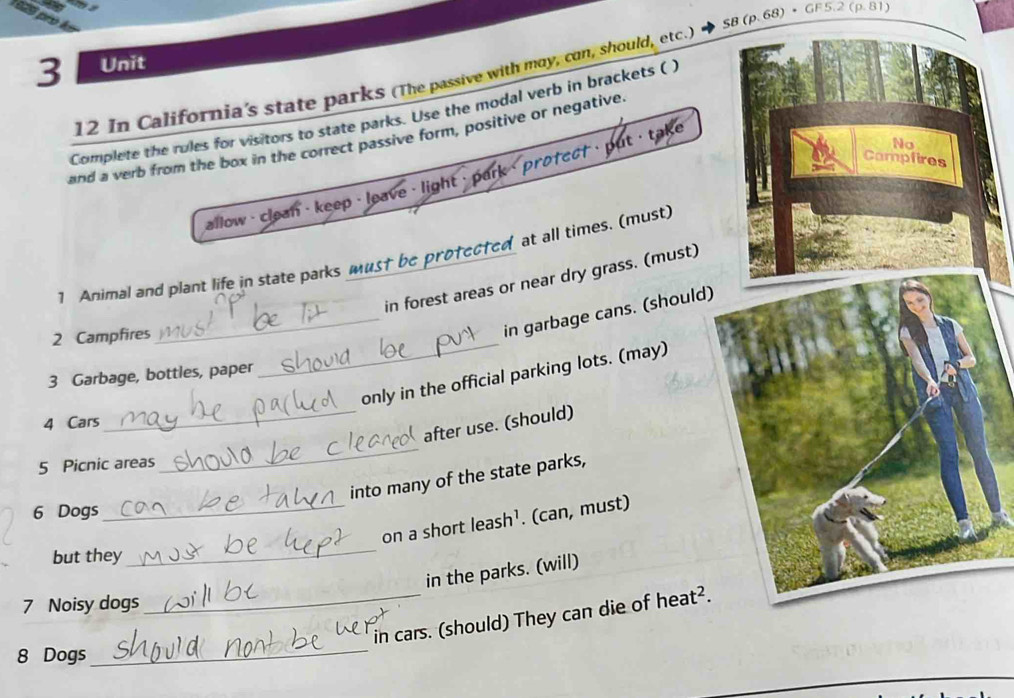 3 Unit
12 In California's state parks (The passive with may, can, should, etc.) → SB (p. 68) • GF 5.2 (p. 81)
Complete the rules for visitors to state parks. Use the modal verb in brackets ( )
and a verb from the box in the correct passive form, positive or negative.
allow · clean · keep · leave · light · park · protect · put · take
No
Campfires
1 Animal and plant life in state parks must be protected at all times. (must)
2 Campfires must not be lit in forest areas or near dry grass. (must)
3 Garbage, bottles, paper should be put in garbage cans. (should)
4 Cars may be parked only in the official parking lots. (may)
5 Picnic areas should be cleaned after use. (should)
6 Dogs can be taken into many of the state parks,
but they must be kept on a short leash¹. (can, must)
7 Noisy dogs will be in the parks. (will)
8 Dogs should nont be kept in cars. (should) They can die of heat².